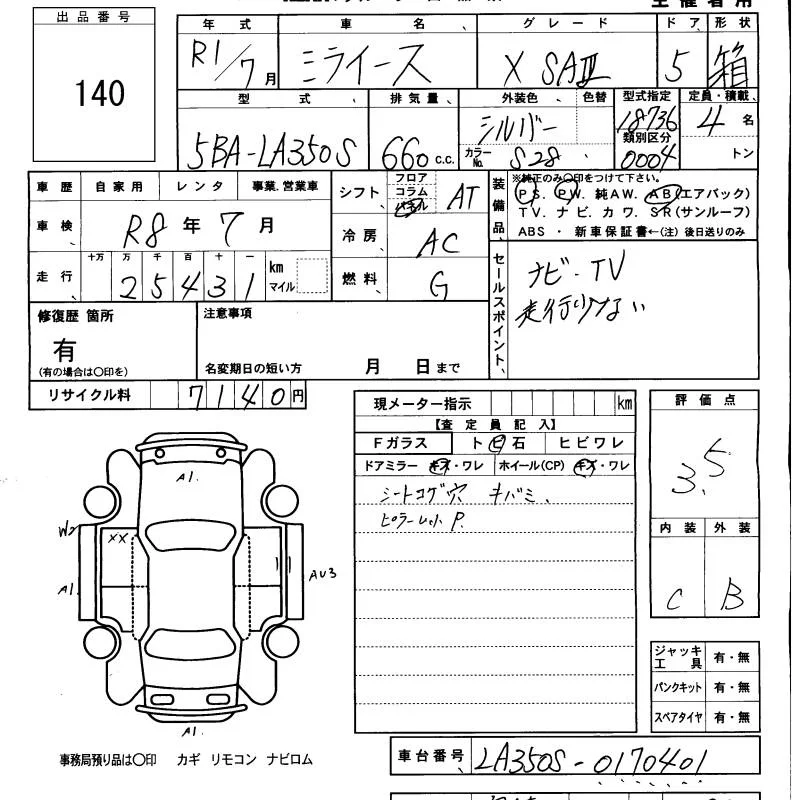 出品番号
140
年式 車名 グレード ドア 形状
R1/7月 ミライース X SAⅢ 5 箱
型式 排気量 外装色 色替 型式指定 定員・積載
5BA-LA350S 660 c.c. シルバー 18736 4 名
類別区分
カラーNo. S28 0004 トン
車歴 自家用 レンタ 事業.営業車
シフト フロア コラム パネル AT
装備品 ※純正のみ〇印をつけて下さい。
PS. PW. 純AW. AB(エアバック)
TV. ナビ. カワ. SR(サンルーフ)
ABS ・ 新車保証書←(注) 後日送りのみ
車検 R8 年 7 月
冷房 AC
走行 十万 万 千 百 十 一
2 5 4 3 1 km マイル
燃料 G
セールスポイント
ナビ・TV
修復歴 箇所
有
(有の場合は〇印を)
注意事項
名変期日の短い方 月 日まで
リサイクル料 7 1 4 0 円
現メーター指示 km
【査定員記入】
Fガラス トビ石 ヒビワレ
ドアミラー キズ・ワレ ホイール(CP) キズ・ワレ
シートコゲ穴 キバミ、
評価点
3.5
内装 外装
C B
A1.
W2
XX
A1.
AU3
A1.
ジャッキ 工具 有・無
パンクキット 有・無
スペアタイヤ 有・無
事務局預り品は〇印 カギ リモコン ナビロム
車台番号 LA350S-0170401